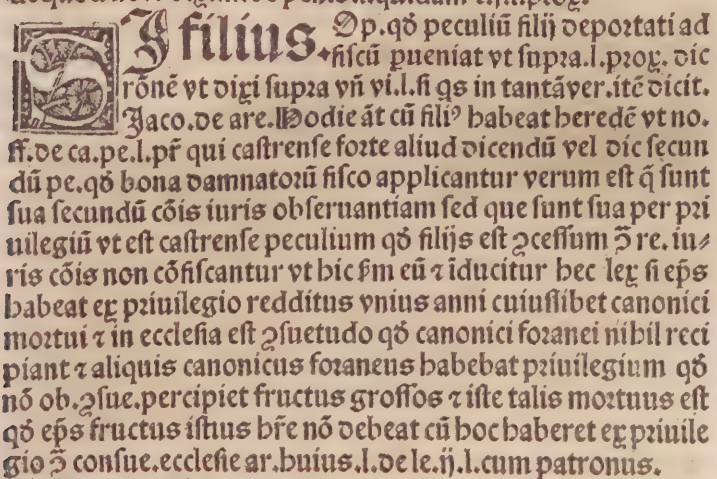 SI filius. Op. qđ peculiū filij deportati ad
fiscū ꝑueniat vt supra. l. prox. dic
rōnē vt dixi supra vñ vi. l. fi qs in tantā ver. itē dicit.
Jaco. de are. Hodie āt cū filiꝰ habeat heredē vt no.
ff. de ca. pe. l. pr̄ qui castrense forte aliud dicendū vel dic secun
dū pe. qđ bona damnatorū fisco applicantur verum est q̄ sunt
sua secundū cōis iuris obseruantiam sed que sunt sua per pri
uilegiū vt est castrense peculium qđ filijs est ꝯcessum ꝯ̄ re. iu⸗
ris cōis non cōfiscantur vt hic ẜm eū ⁊ īducitur hec lex si ep̄s
habeat ex priuilegio redditus vnius anni cuiuslibet canonici
mortui ⁊ in ecclesia est ꝯsuetudo qđ canonici foranei nihil reci
piant ⁊ aliquis canonicus foraneus habebat priuilegium qđ
nō ob. ꝯsue. percipiet fructus grossos ⁊ iste talis mortuus est
qđ ep̄s fructus istius hr̄e nō debeat cū hoc haberet ex priuile
gio ꝯ̄ consue. ecclesie ar. huius. l. de le. ij. l. cum patronus.